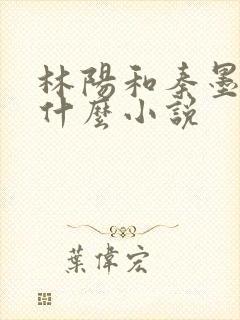 林陽和秦墨
什麼小説
葉偉宏